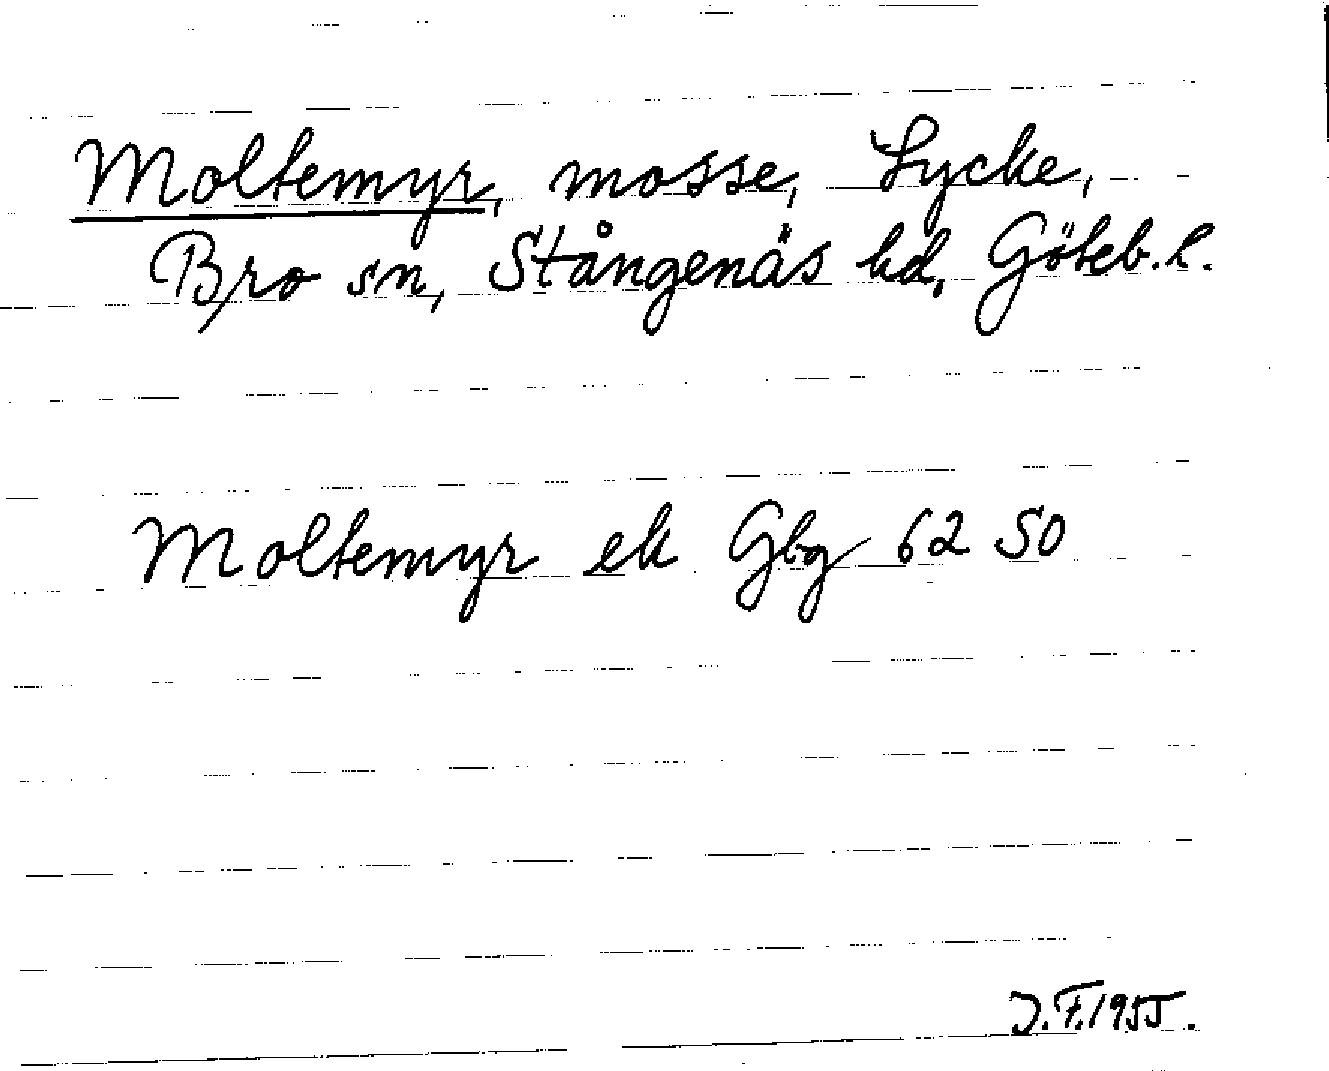 Moltemyr, mosse, Lycke,
Bro sn, Stångenäs hd, Göteb. l.
Moltemyr ek Gbg 62 50
J.F. 1955.